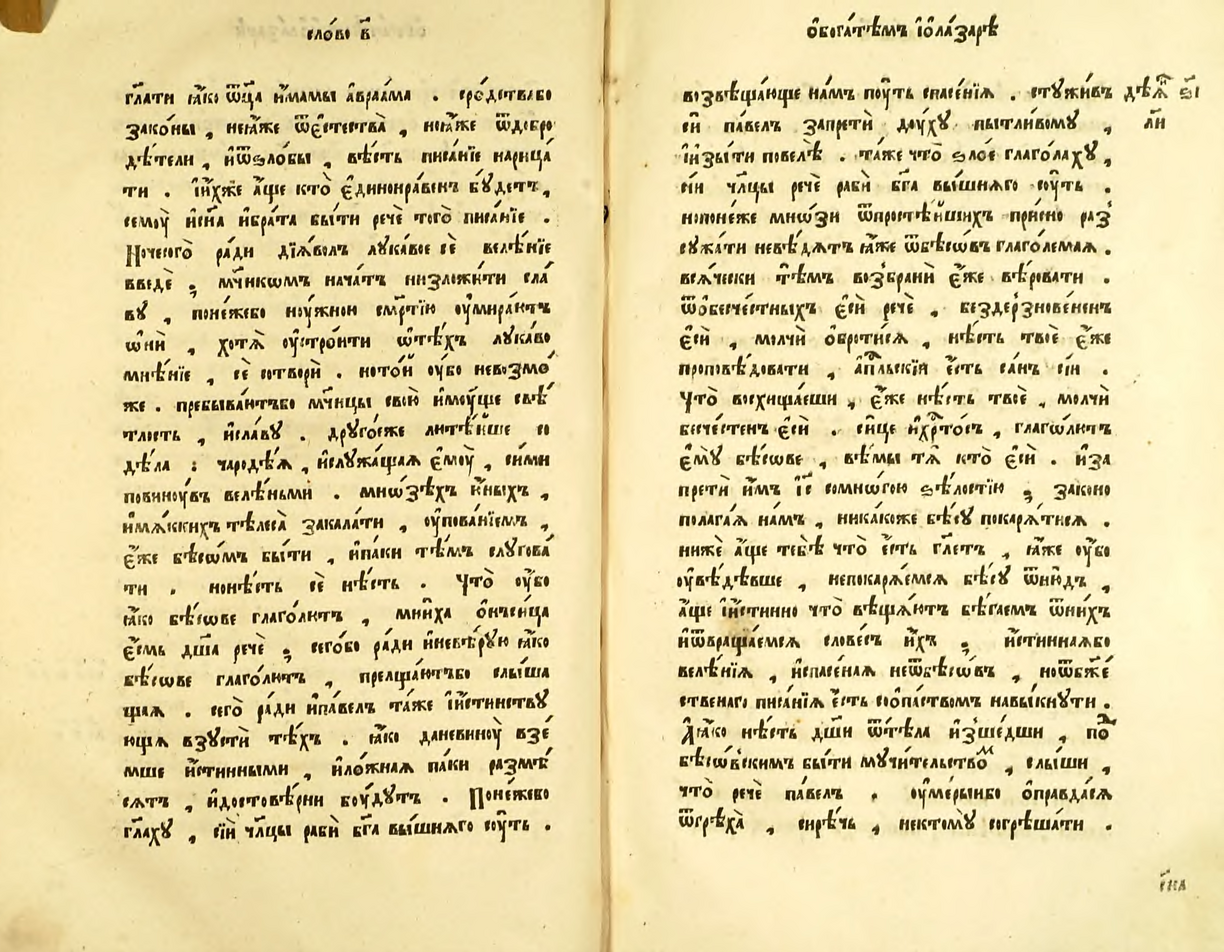 сло́во в҃
гл҃ати ꙗ҆́ко ѿц҃а и҆́мамы а҆враа́ма . сре́дствабо
зако́ны , неꙗ҆́же ѿє҆стества̀ , ноꙗ҆́же ѿдобро
дѣ́тели , и҆ѿѕло́бы , вѣ́сть писа́нїе нарица́
ти . и҆и҆́хже а҆́ще кто̀ є҆динонра́венъ бꙋ́детъ ,
семоу̀ и҆сн҃а и҆бра́та бы́ти речѐ того̀ писа́нїе .
Ночесого̀ ра́ди дїа́волъ лꙋка́вое сѐ велѣ́нїе
введѐ ; мч҃никѡмъ нача́тъ низложи́ти сла́
вꙋ , поне́жебо ноу́жною сме́ртїю оу҆мира́ютъ
ѻ҆нѝ , хотѧ̀ оу҆стро́ити ѿтѣ́хъ лꙋка́во
мнѣ́нїе , сѐ сотворѝ . ното́й оу҆бо невозмо́
же . пребыва́ютъбо мч҃ницы свою̀ и҆моу́ще свѣ́
тлость , и҆сла́вꙋ . дрꙋго́еже лютѣ́йше со
дѣ́ла : чародѣ́ѧ , и҆слꙋжа́щаѧ є҆моу̀ , си́ми
повиноу́въ велѣ́ньми . мнѡ́зѣхъ ю҆́ныхъ ,
и҆мѧ́сскихъ тѣлеса̀ закала́ти , оу҆пова́нїемъ ,
є҆́же бѣсѡ́мъ бы́ти , и҆па́ки тѣ́мъ слꙋгова́
ти . нонѣ́сть сѐ нѣ́сть . Что̀ оу҆́бо
ꙗ҆́ко бѣ́сове глаго́лютъ , мни́ха о҆нси́ца
є҆́смь дш҃а речѐ ; сего́бо ра́ди и҆невѣ́рꙋю ꙗ҆́ко
бѣ́сове глаго́лютъ , прелща́ютъбо слы́ша
щаѧ . сего̀ ра́ди и҆па́велъ та́же и҆и҆́стинствꙋ
ющѧ взꙋстѝ тѣ́хъ . ꙗ҆́ко даневиноу̀ взе́
мше и҆́стинными , и҆ло́жнаѧ па́ки размѣ́
сѧтъ , и҆достовѣ́рни боу́дꙋтъ . Поне́жебо
гл҃ахꙋ , сїѝ чл҃цы рабѝ бг҃а вы́шнѧго соу́ть .
о҆бога́тѣмъ і҆ола́зарѣ
возвѣща́юще на́мъ поу́ть спасе́нїѧ . стꙋжи́въ
дѣѧ҃ ѕ҃і
си̑ па́велъ запретѝ доу́хꙋ пытли́вомꙋ ,
и҆и҆зы́ти повелѣ̀ . та́же что̀ ѕло́е глаго́лахꙋ ,
сїи̑ чл҃цы речѐ рабѝ бг҃а вы́шнѧго соу́ть .
нопоне́же мно́зи ѿпростѣ́йшихъ при́сно раз
сꙋжа́ти невѣ́дѧтъ ꙗ҆́же ѿбѣсѡ́въ глаго́лемаѧ .
всѧ́чески тѣ́мъ возбранѝ є҆́же вѣ́ровати .
ѿо҆бесче́стныхъ є҆сѝ речѐ , бездерзнове́ненъ
є҆сѝ , молчѝ о҆брати́сѧ , нѣ́сть твоѐ є҆́же
проповѣ́довати , а҆пⷭ҇льскїй є҆́сть са́нъ сїи̑ .
Что̀ восхища́еши , є҆́же нѣ́сть твоѐ , молчѝ
бесче́стенъ є҆сѝ . си́це и҆хр҃то́съ , глаго́лютъ
є҆мꙋ̀ бѣ́сове , вѣ́мы тѧ̀ кто̀ є҆сѝ . и҆за
претѝ и҆̀мъ і҆с҃ сомно́гою ѕѣ́лостїю ; зако́но
полага́ѧ на́мъ , ника́коже бѣ́сꙋ покарѧ́тисѧ .
нижѐ а҆́ще тебѣ̀ что̀ є҆́сть гл҃етъ , ꙗ҆́же оу҆́бо
оу҆вѣ́дѣвше , непокарѧ́емсѧ бѣ́сꙋ ѿню́дъ ,
а҆́ще и҆и҆́стинно что̀ вѣща́ютъ бѣ́гаемъ ѿни́хъ
и҆ѿвраща́емсѧ слове́съ и҆́хъ ; и҆́стиннаѧбо
велѣ́нїѧ , и҆спасе́наѧ неѿбѣсѡ́въ , ноѿбж҃е́
ственаго писа́нїѧ є҆́сть соо҆па́ствомъ навы́кнꙋти .
А҆ꙗ҆́ко нѣ́сть дш҃и ѿтѣ́ла и҆зше́дши , под
бѣсѡ́вскимъ бы́ти мꙋчи́тельствоⷨ , слы́ши ,
что̀ речѐ па́велъ . оу҆мерыи́бо о҆правда́сѧ
ѿгрѣха̀ , сирѣ́чь , нектомꙋ̀ согрѣша́ти .